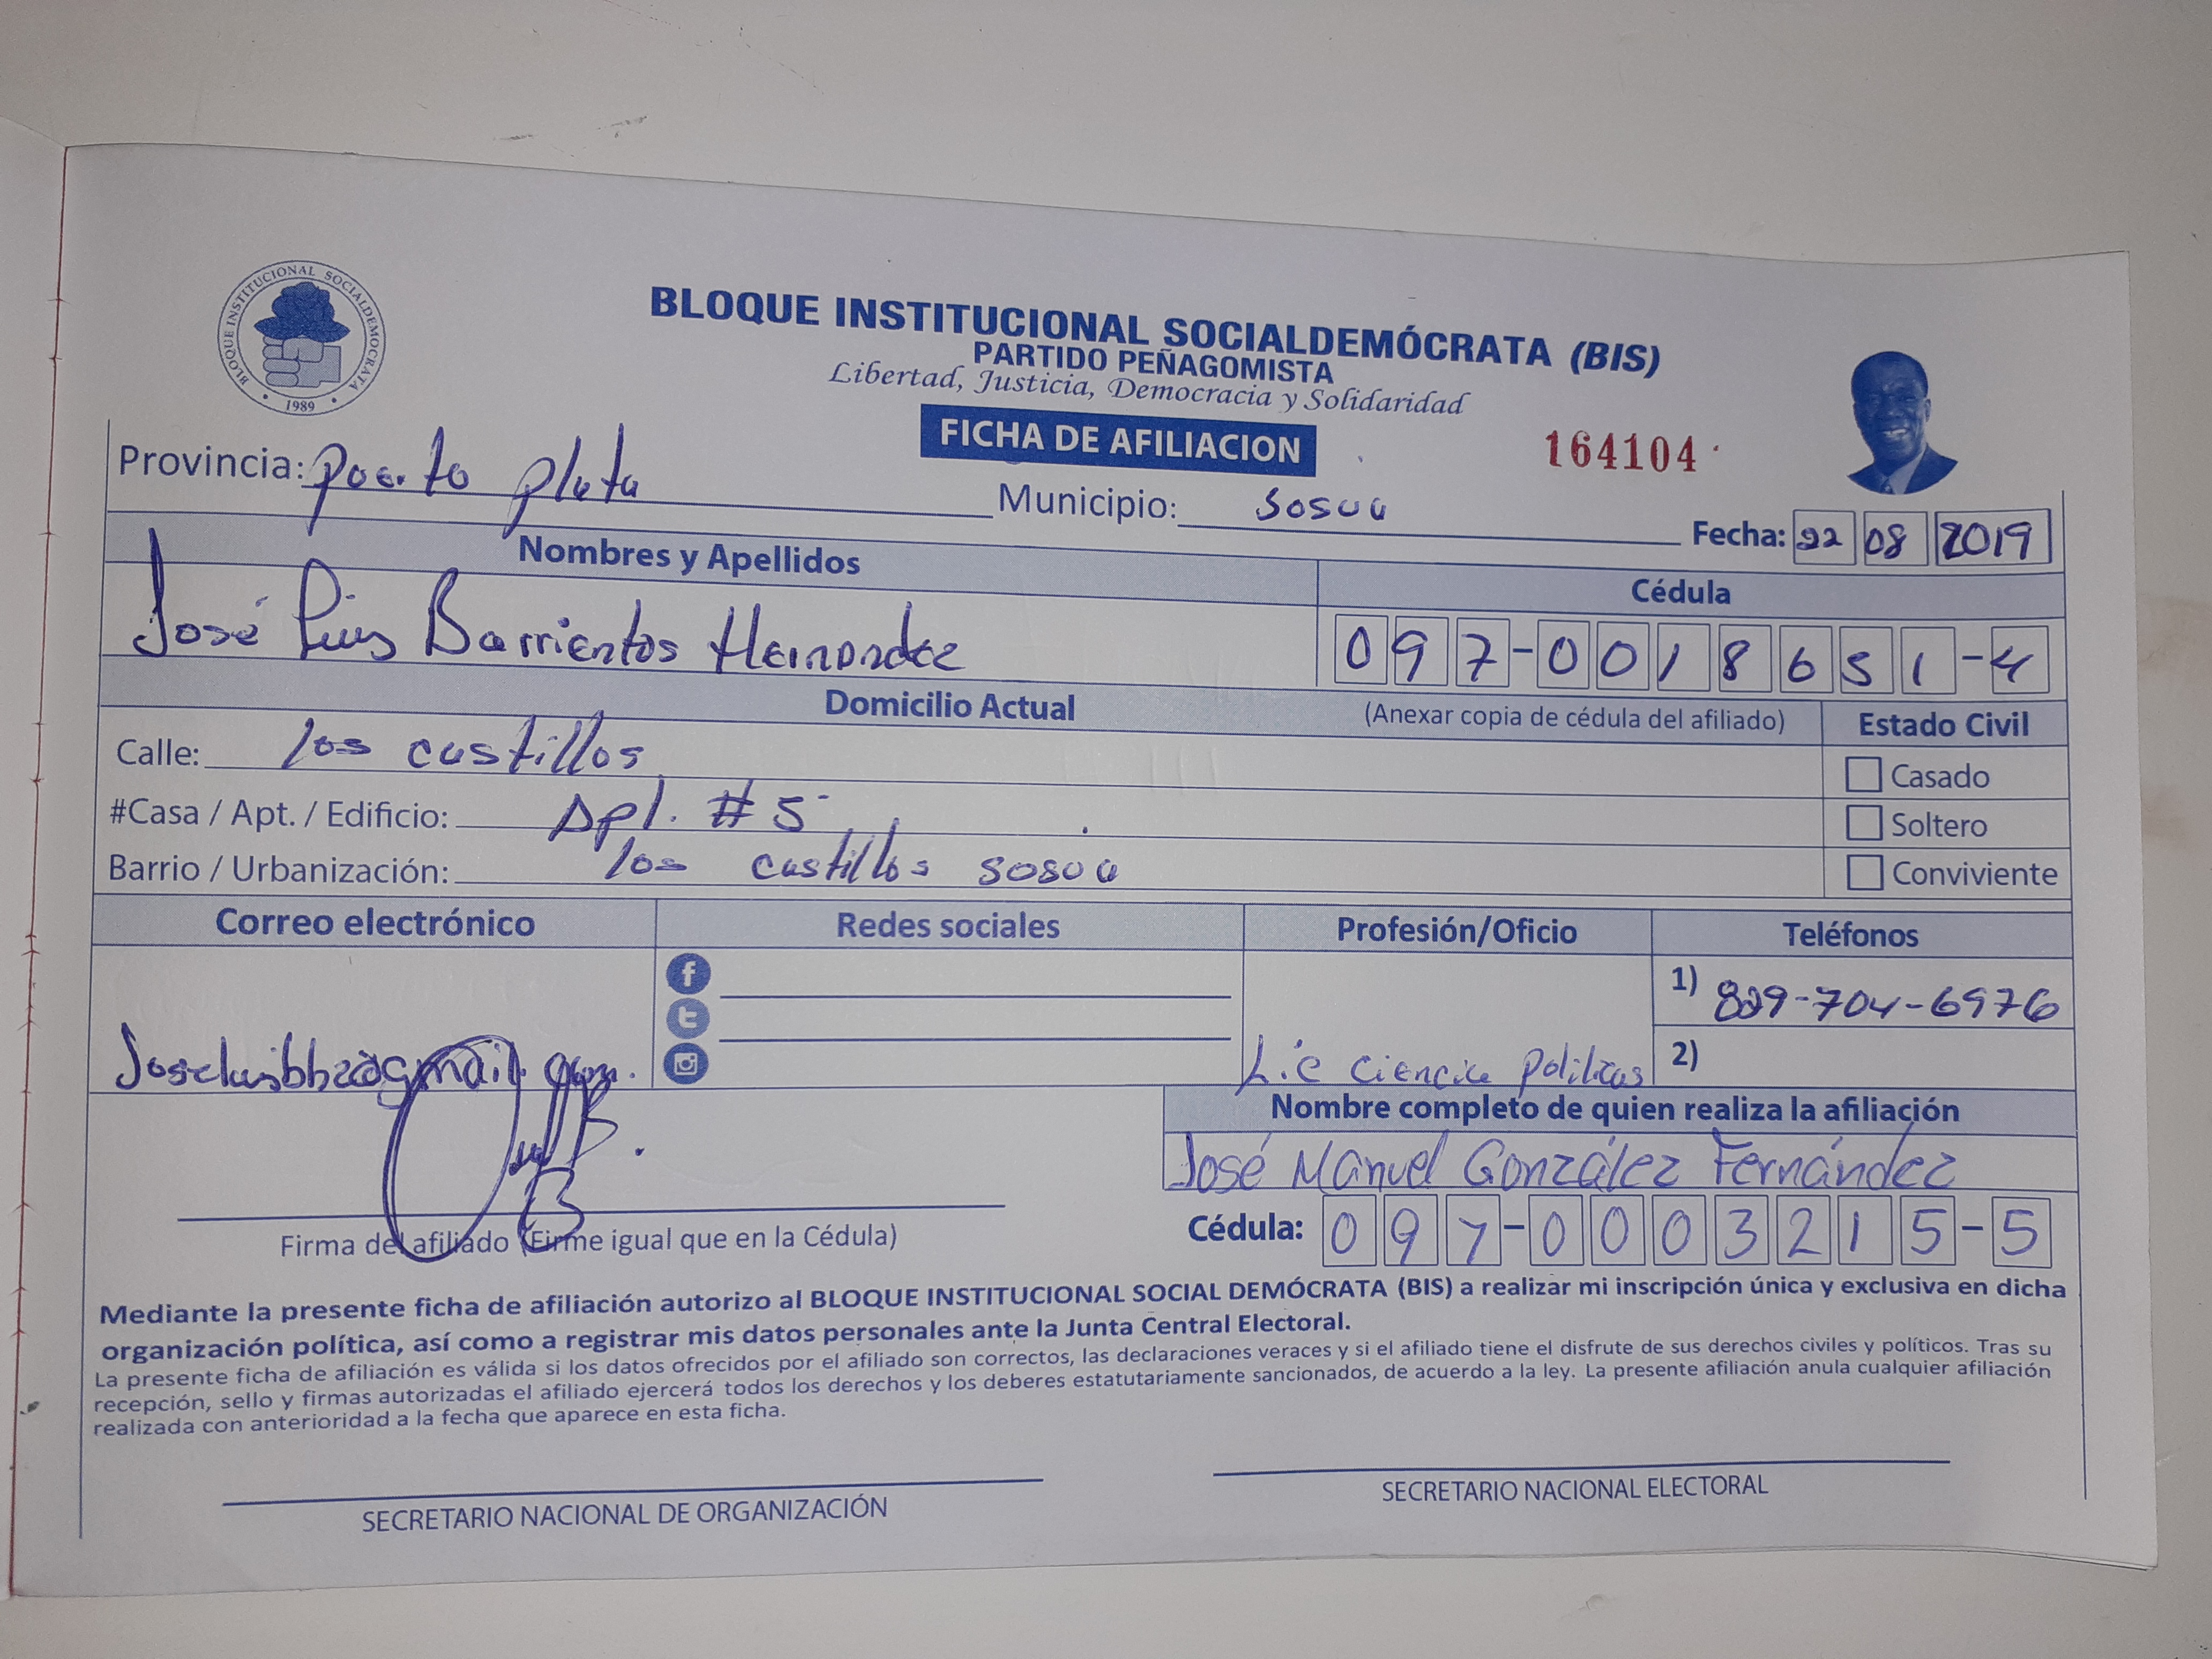 BLOQUE INSTITUCIONAL SOCIALDEMOCRATA
1989
BLOQUE INSTITUCIONAL SOCIALDEMÓCRATA (BIS)
PARTIDO PEÑAGOMISTA
Libertad, Justicia, Democracia y Solidaridad
FICHA DE AFILIACION
164104
Provincia: puerto plata Municipio: Sosua Fecha: 22 08 2019
Nombres y Apellidos Cédula
José Luis Barrientos Hernandez 097-0018651-4
Domicilio Actual (Anexar copia de cédula del afiliado) Estado Civil
Calle: los castillos Casado
#Casa / Apt. / Edificio: Apt. #5 Soltero
Barrio / Urbanización: los castillos sosua Conviviente
Correo electrónico Redes sociales Profesión/Oficio Teléfonos
1) 829-704-6976
Lic Ciencia politicas 2)
Nombre completo de quien realiza la afiliación
José Manuel González Fernández
Firma del afiliado (Firme igual que en la Cédula) Cédula: 097-0003215-5
Mediante la presente ficha de afiliación autorizo al BLOQUE INSTITUCIONAL SOCIAL DEMÓCRATA (BIS) a realizar mi inscripción única y exclusiva en dicha
organización política, así como a registrar mis datos personales ante la Junta Central Electoral.
La presente ficha de afiliación es válida si los datos ofrecidos por el afiliado son correctos, las declaraciones veraces y si el afiliado tiene el disfrute de sus derechos civiles y políticos. Tras su
recepción, sello y firmas autorizadas el afiliado ejercerá todos los derechos y los deberes estatutariamente sancionados, de acuerdo a la ley. La presente afiliación anula cualquier afiliación
realizada con anterioridad a la fecha que aparece en esta ficha.
SECRETARIO NACIONAL DE ORGANIZACIÓN SECRETARIO NACIONAL ELECTORAL